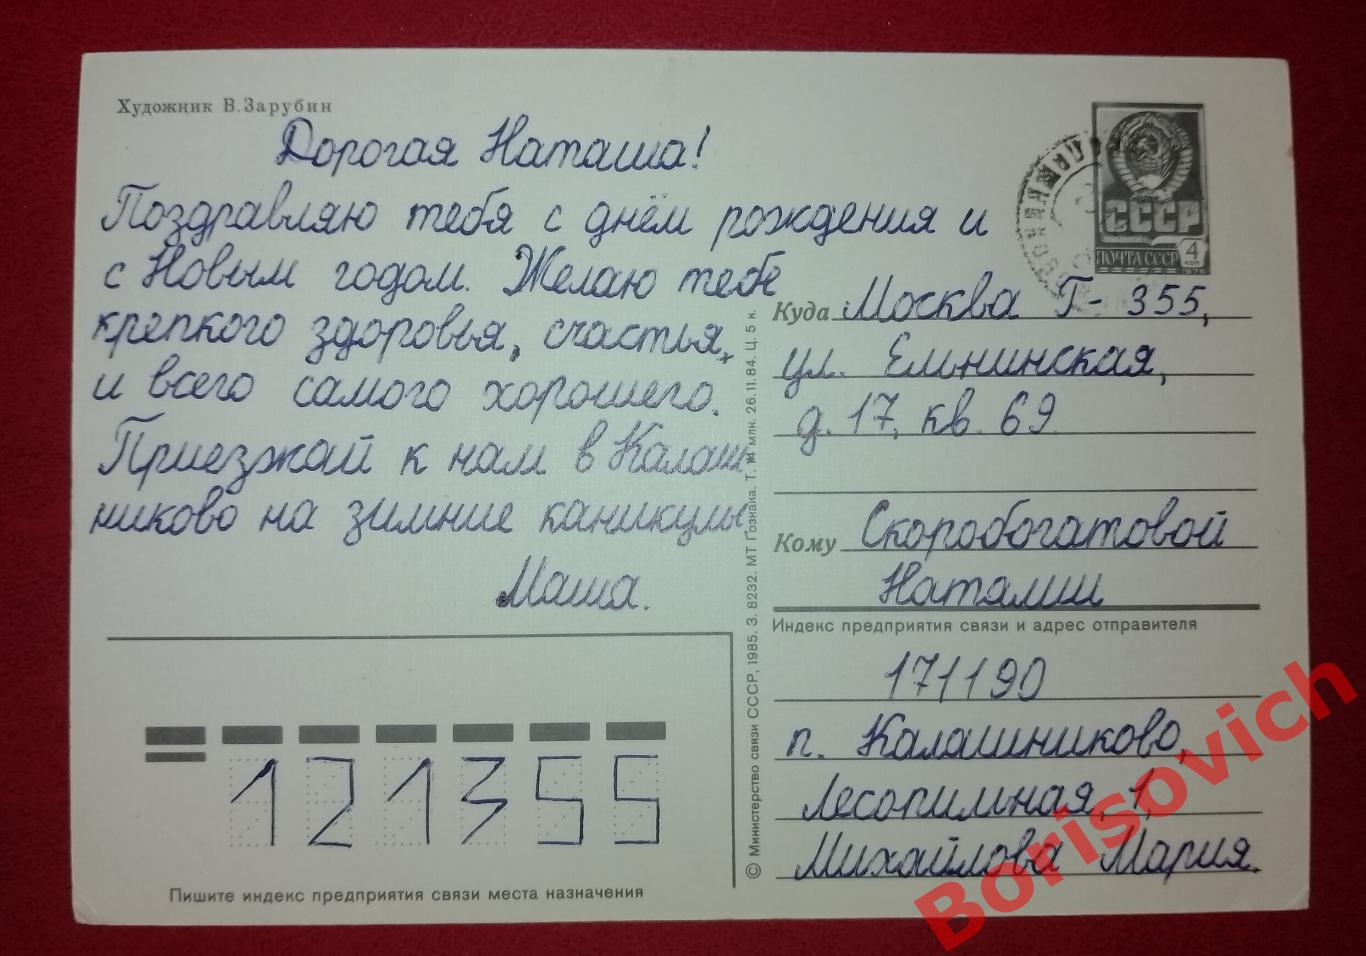 Художник В. Зарубин
Дорогая Наташа!
Поздравляю тебя с днём рождения и
с Новым годом. Желаю тебе
крепкого здоровья, счастья,
и всего самого хорошего.
Приезжай к нам в Калаш
никово на зимние каникулы
Маша.
СССР
ПОЧТА СССР 4 коп
1976
Куда Москва Г-355,
ул. Ельнинская,
д. 17, кв. 69
Кому Скоробогатовой
Наталии
Индекс предприятия связи и адрес отправителя
171190
п. Калашниково,
Лесопильная, 1,
Михайлова Мария.
© Министерство связи СССР, 1985. З. 8232. МТ Гознака. Т. 14 млн. 26.11.84. Ц. 5 к.
121355
Пишите индекс предприятия связи места назначения
Borisovich